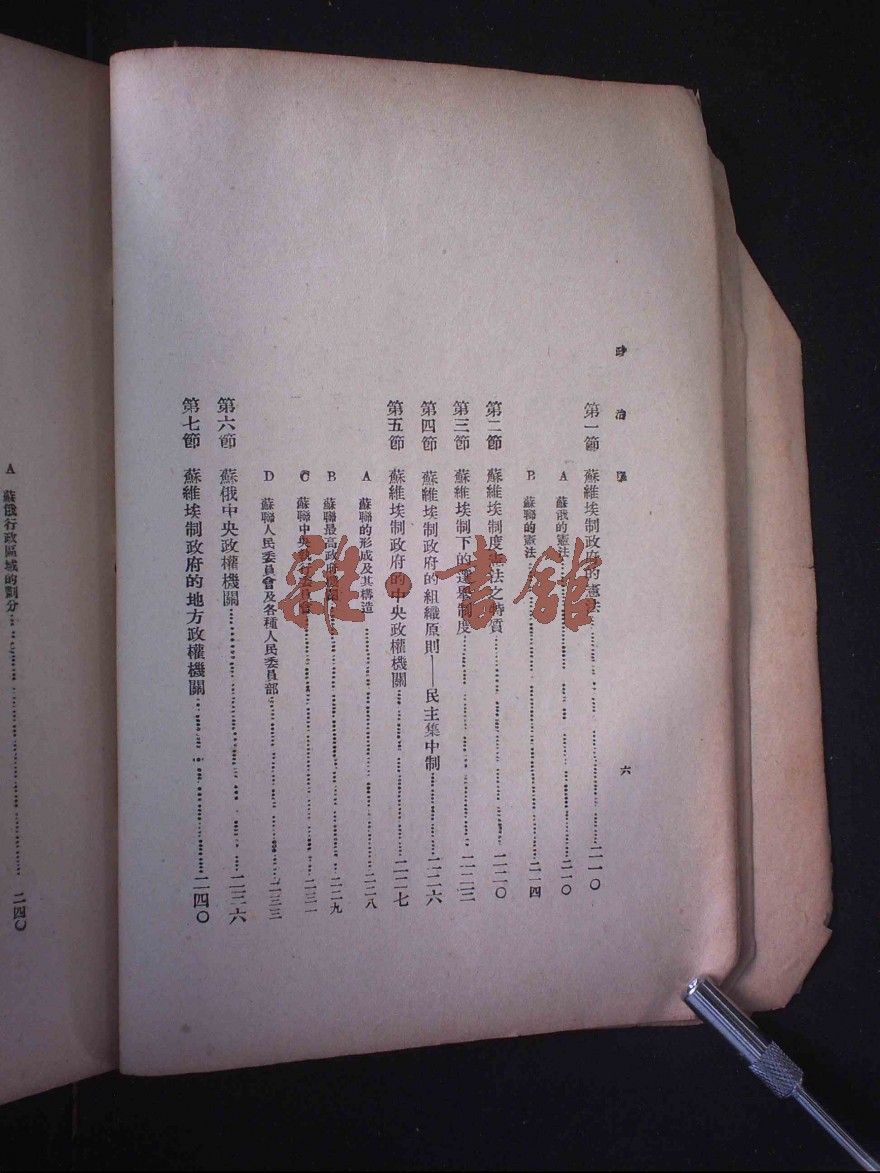 政治學 六
第一節 蘇維埃制政府的憲法 二一〇
A 蘇俄的憲法 二一〇
B 蘇聯的憲法 二一四
第二節 蘇維埃制度憲法之特質 二二〇
第三節 蘇維埃制下的選舉制度 二二三
第四節 蘇維埃制政府的組織原則——民主集中制 二二六
第五節 蘇維埃制政府的中央政權機關 二二七
A 蘇聯的形成及其構造 二二八
B 蘇聯最高政府機關 二二九
C 蘇聯中央執行委員會 二三一
D 蘇聯人民委員會及各種人民委員部 二三三
第六節 蘇俄中央政權機關 二三六
第七節 蘇維埃制政府的地方政權機關 二四〇
A 蘇俄行政區域的劃分 二四〇
雜·書館